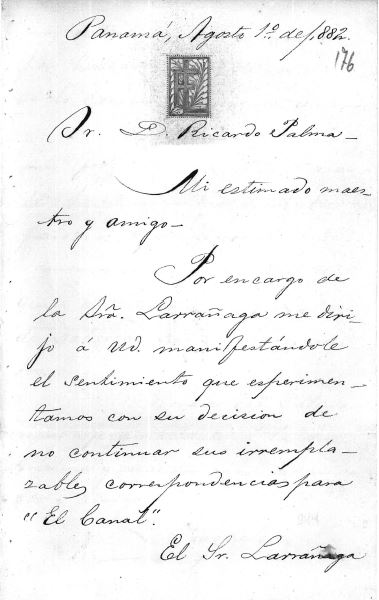 Panamá, Agosto 1º de 1,882.
176
Sr. D. Ricardo Palma—
Mi estimado maes-
tro y amigo—
Por encargo de
la Srã. Larrañaga me diri-
jo á Ud. manifestándole
el sentimiento que esperimen-
tamos con su decision de
no continuar sus irrempla-
zables correspondencias para
"El Canal".
El Sr. Larrañaga